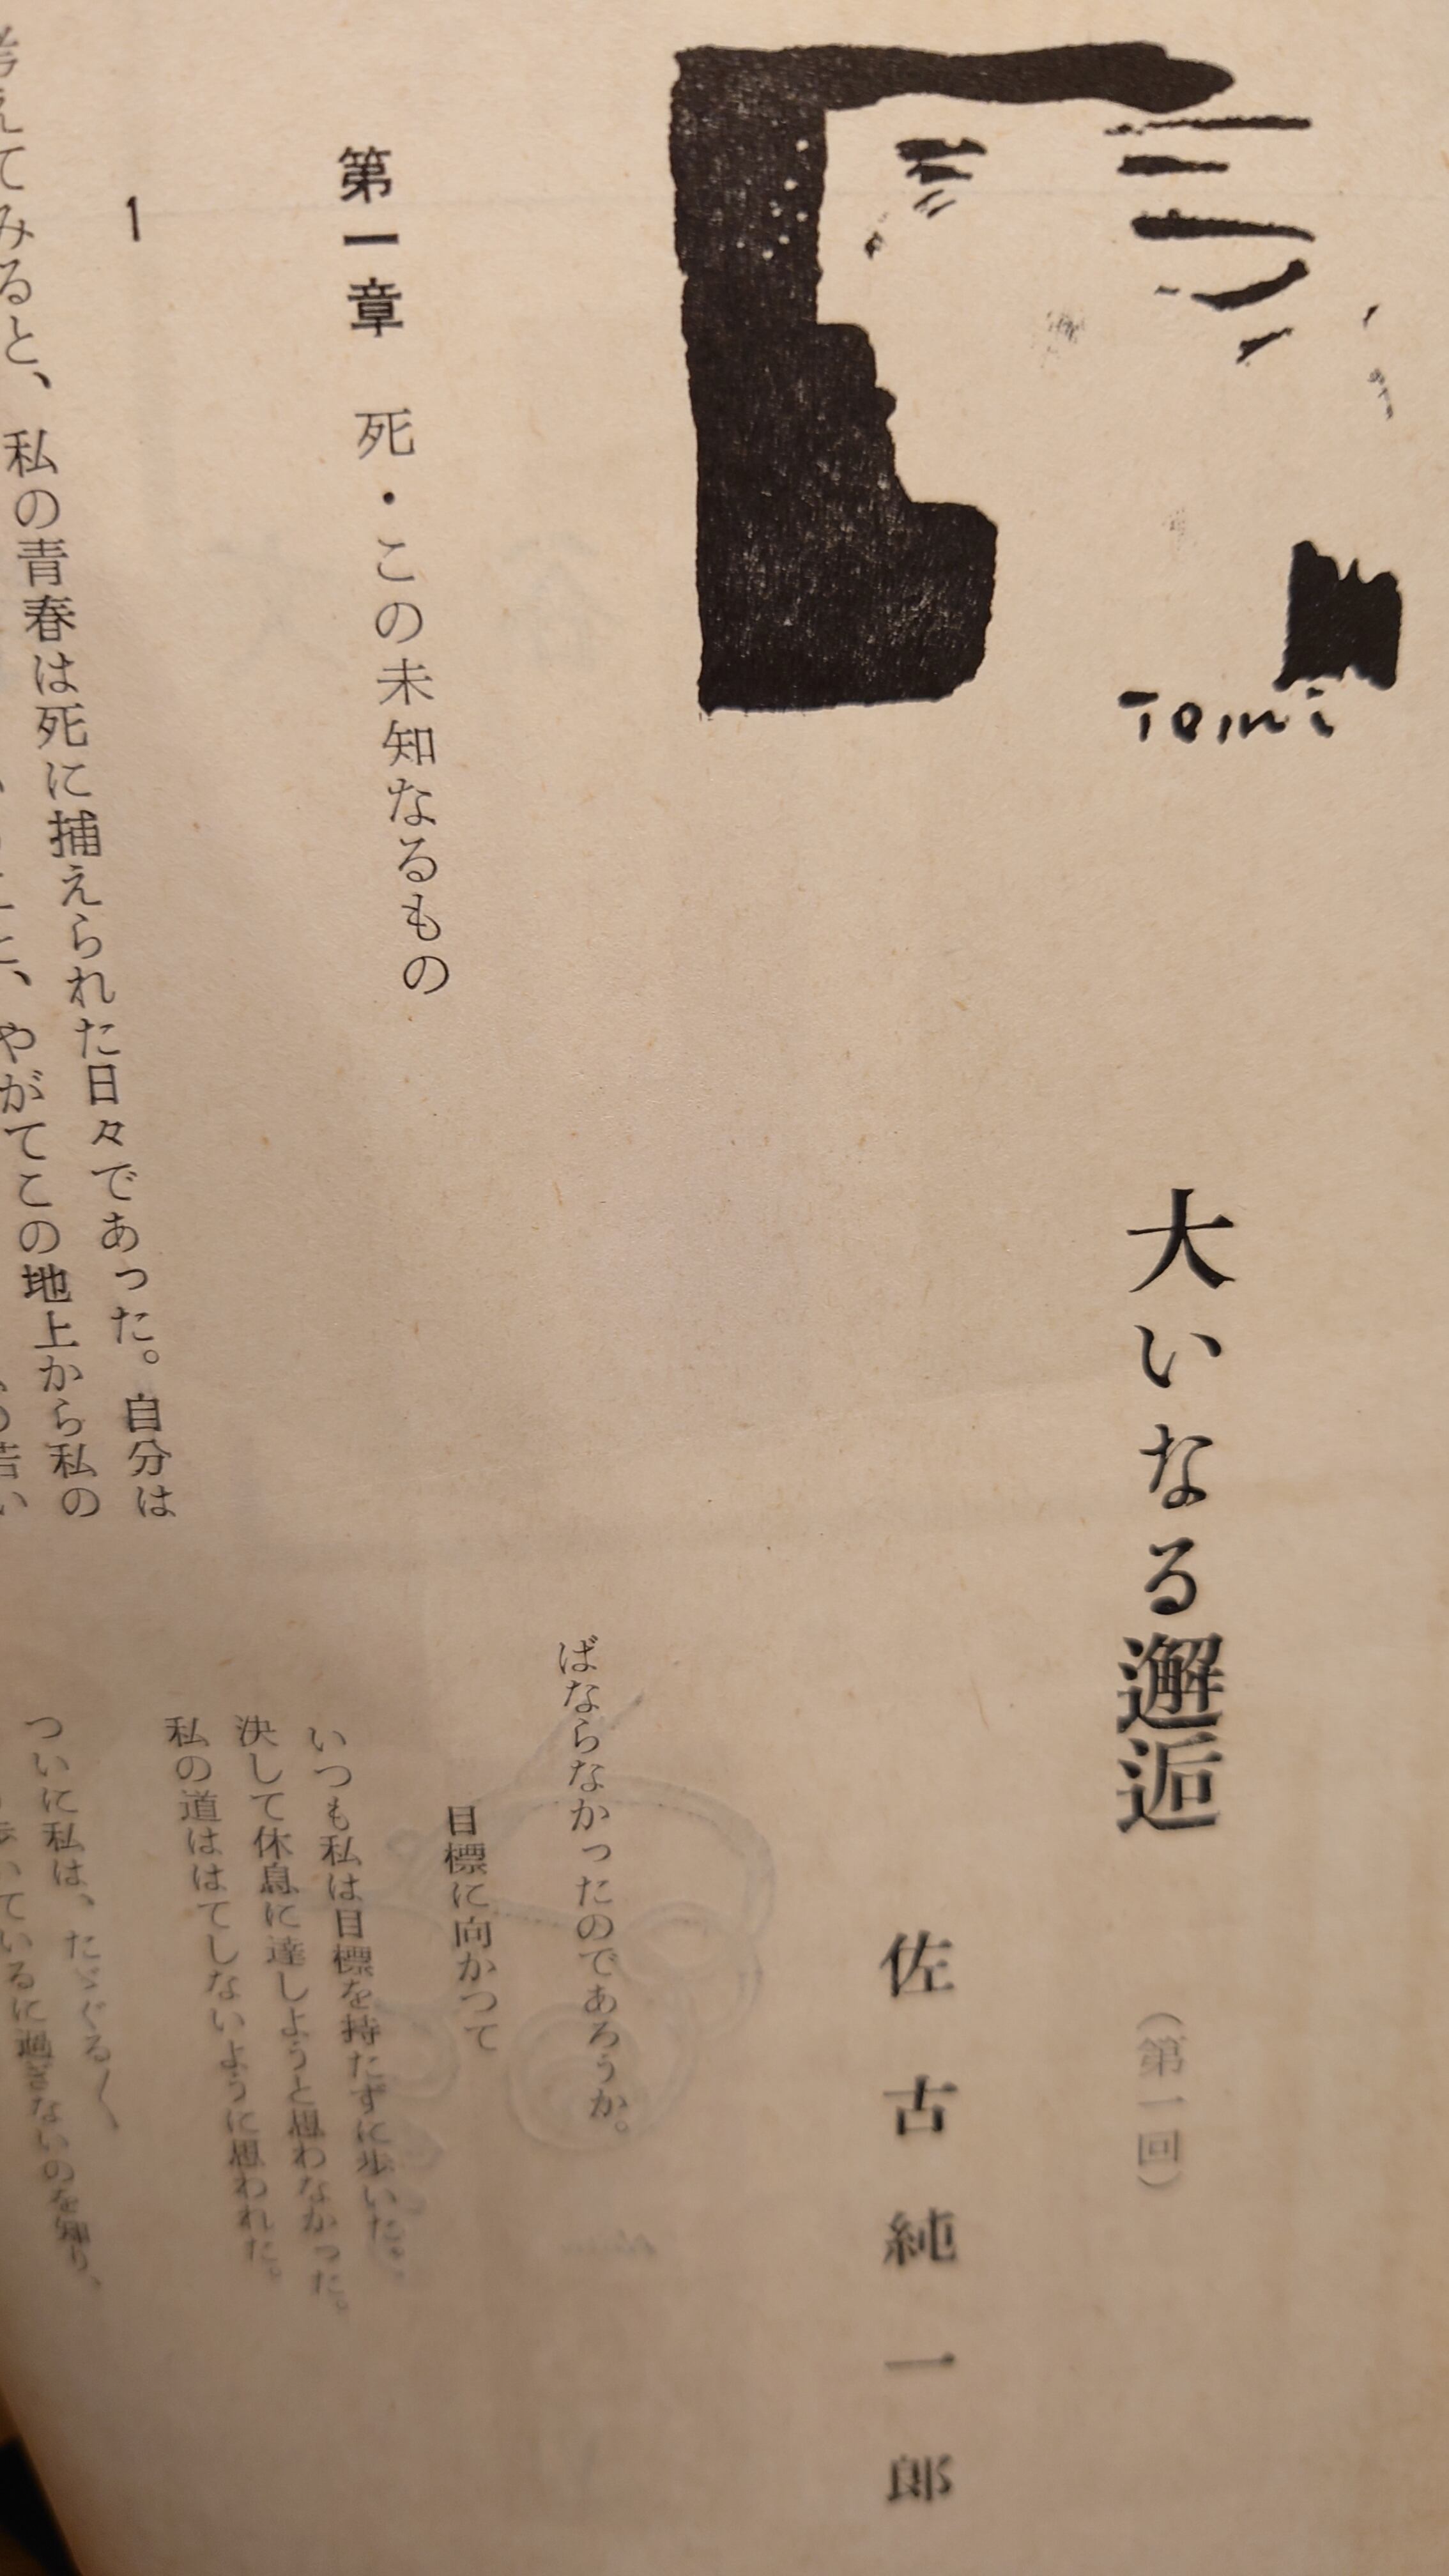 大いなる邂逅
（第一回）
佐古純一郎
Tomi
第一章 死・この未知なるもの
1
考えてみると、私の青春は死に捕えられた日々であった。自分は
やがてこの地上から私の
ばならなかったのであろうか。
目標に向かつて
いつも私は目標を持たずに歩いた。
決して休息に達しようと思わなかった。
私の道ははてしないように思われた。
ついに私は、たゞぐる〱
歩いているに過ぎないのを知り、